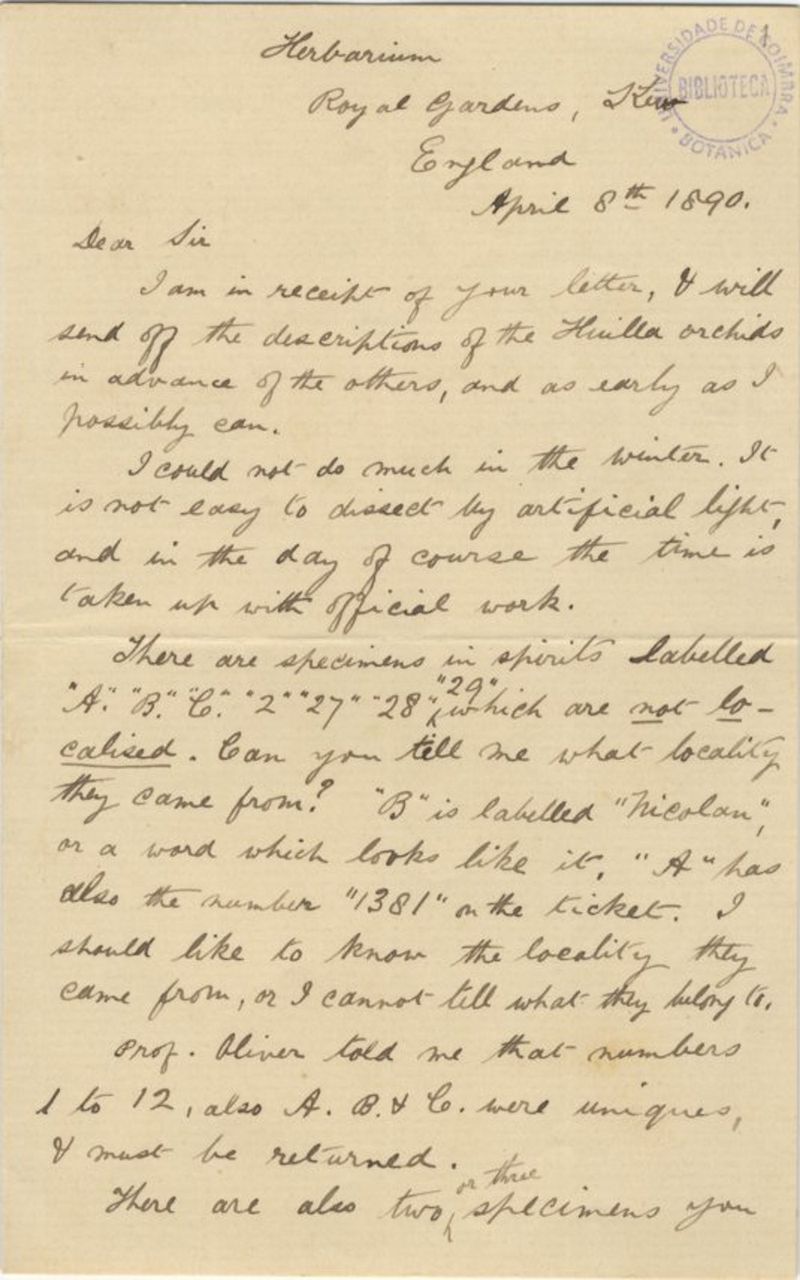 1
UNIVERSIDADE DE COIMBRA
BIBLIOTECA
BOTANICA
Herbarium
Royal Gardens, Kew
England
April 8th 1890.
Dear Sir
I am in receipt of your letter, & will
send off the descriptions of the Huilla orchids
in advance of the others, and as early as I
possibly can.
I could not do much in the winter. It
is not easy to dissect by artificial light,
and in the day of course the time is
taken up with official work.
There are specimens in spirits labelled
"A." "B." "C." "2" "27" "28" "29" which are not lo-
calised. Can you tell me what locality
they came from? "B" is labelled "Nicolau",
or a word which looks like it. "A" has
also the number "1381" on the ticket. I
should like to know the locality they
came from, or I cannot tell what they belong to.
Prof. Oliver told me that numbers
1 to 12, also A. B. & C. were uniques,
& must be returned.
There are also two or three specimens you